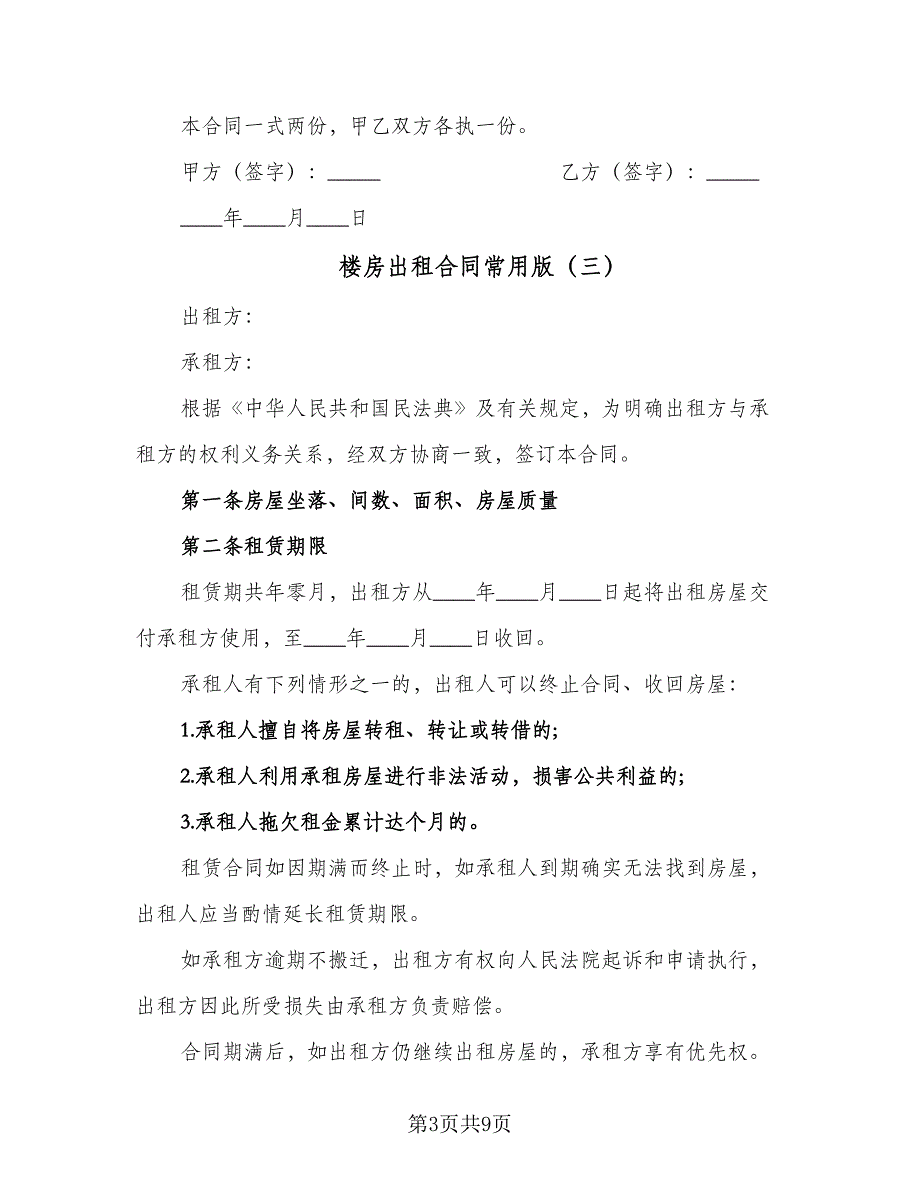 本合同一式两份，甲乙双方各执一份。
甲方（签字）：_____ 乙方（签字）：_____
____年____月____日
楼房出租合同常用版（三）
出租方：
承租方：
根据《中华人民共和国民法典》及有关规定，为明确出租方与承
租方的权利义务关系，经双方协商一致，签订本合同。
第一条房屋坐落、间数、面积、房屋质量
第二条租赁期限
租赁期共年零月，出租方从____年____月____日起将出租房屋交
付承租方使用，至____年____月____日收回。
承租人有下列情形之一的，出租人可以终止合同、收回房屋：
1.承租人擅自将房屋转租、转让或转借的;
2.承租人利用承租房屋进行非法活动，损害公共利益的;
3.承租人拖欠租金累计达个月的。
租赁合同如因期满而终止时，如承租人到期确实无法找到房屋，
出租人应当酌情延长租赁期限。
如承租方逾期不搬迁，出租方有权向人民法院起诉和申请执行，
出租方因此所受损失由承租方负责赔偿。
合同期满后，如出租方仍继续出租房屋的，承租方享有优先权。
第3页共9页